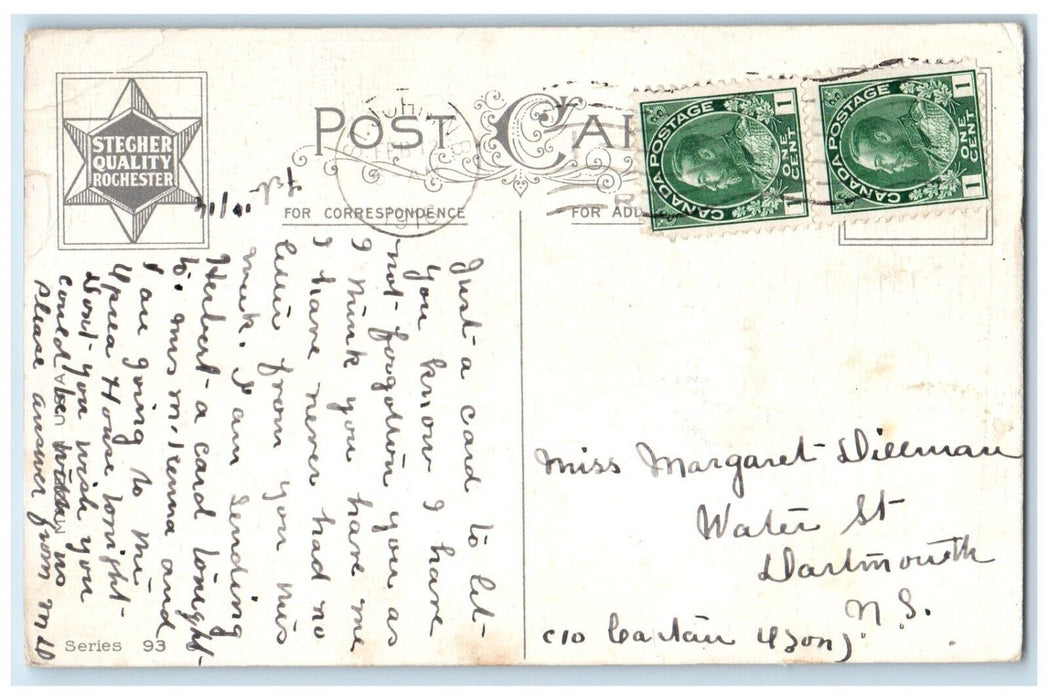 STEGHER
QUALITY
ROCHESTER
POST CA
FOR CORRESPONDENCE
FOR ADD
CANADA POSTAGE
ONE CENT
1
1
CANADA POSTAGE
ONE CENT
1
1
Just a card to let
you know I have
not forgotton you as
I think you have me
I have never had no
letter from you this
week. I am sending
Herbert a card tonight
to. Miss McKenna and
I am going to the
Opera House tonight
Dont you wish you
could be with us
please answer from M D
Miss Margaret Dillman
Water St
Dartmouth
N S.
c/o
Series 93